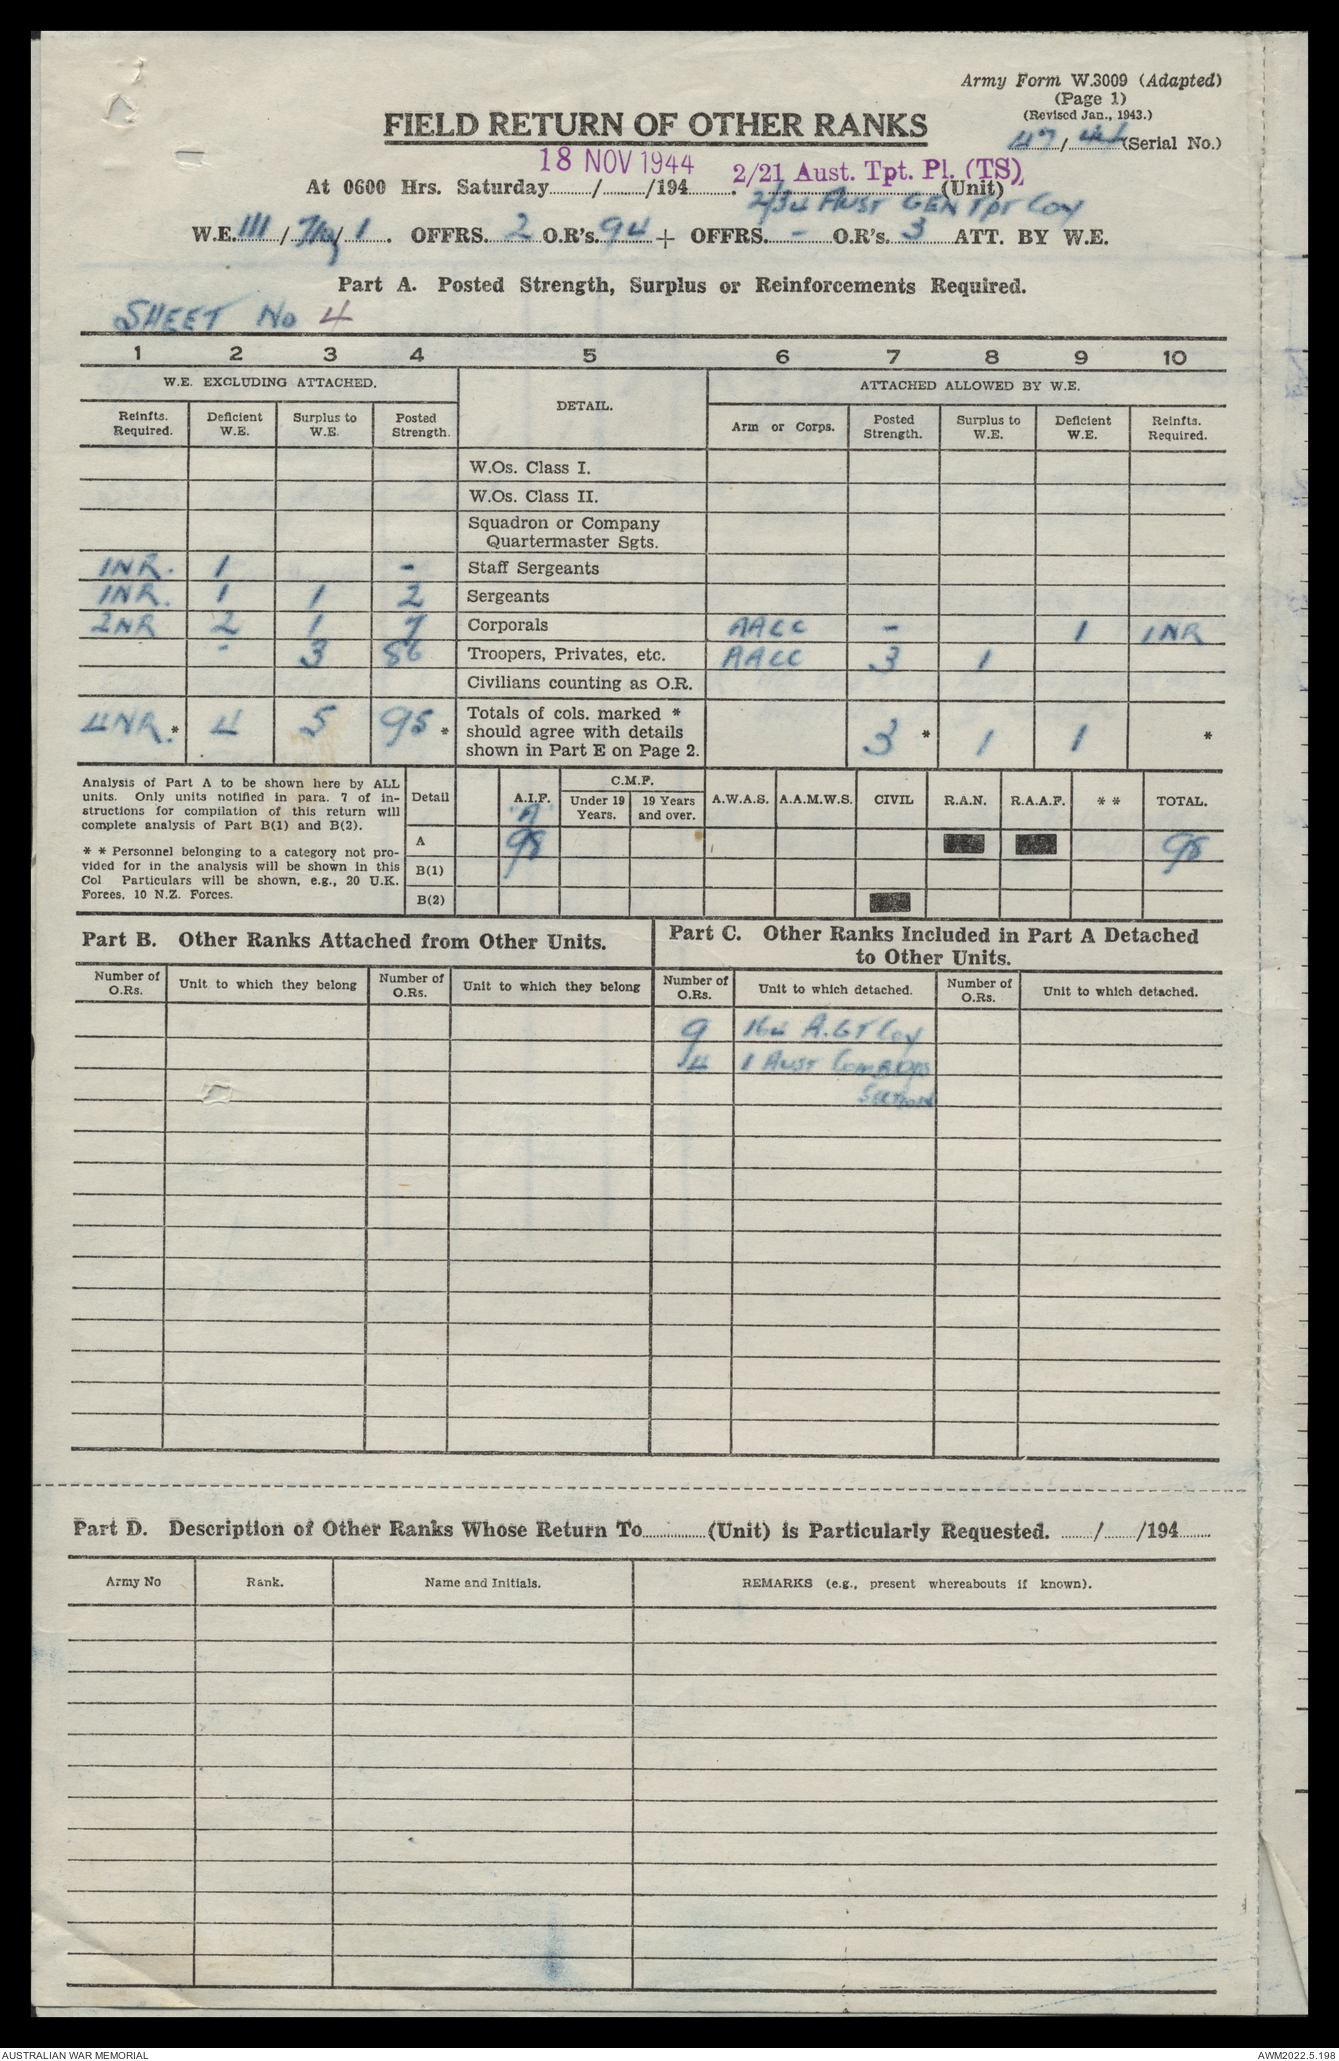 Army Form W.3009 (Adapted)
(Page 1)
(Revised Jan., 1943.)
FIELD RETURN OF OTHER RANKS
47/44 (Serial No.)
18 NOV 1944 2/21 Aust. Tpt. Pl. (TS)
At 0600 Hrs. Saturday......./......./194....... (Unit)
2/34 AUST GEN TPT COY
W.E. 111 / / 1 . OFFRS. 2 O.R's. 94 + OFFRS. - O.R's. 3 ATT. BY W.E.
Part A. Posted Strength, Surplus or Reinforcements Required.
SHEET No 4
1 2 3 4 5 6 7 8 9 10
W.E. EXCLUDING ATTACHED. DETAIL. ATTACHED ALLOWED BY W.E.
Reinfts. Required. Deficient W.E. Surplus to W.E. Posted Strength. Arm or Corps. Posted Strength. Surplus to W.E. Deficient W.E. Reinfts. Required.
W.Os. Class I.
W.Os. Class II.
Squadron or Company
Quartermaster Sgts.
1NR. 1 - Staff Sergeants
1NR. 1 1 2 Sergeants
2NR 2 1 7 Corporals AACC - 1 1NR
- 3 86 Troopers, Privates, etc. AACC 3 1
Civilians counting as O.R.
4NR.* 4 5 95* Totals of cols. marked * should agree with details shown in Part E on Page 2. 3* 1 1 *
Analysis of Part A to be shown here by ALL
units. Only units notified in para. 7 of in-
structions for compilation of this return will
complete analysis of Part B(1) and B(2).
* * Personnel belonging to a category not pro-
vided for in the analysis will be shown in this
Col Particulars will be shown, e.g., 20 U.K.
Forces, 10 N.Z. Forces.
Detail A.I.F. C.M.F. Under 19 Years. 19 Years and over. A.W.A.S. A.A.M.W.S. CIVIL R.A.N. R.A.A.F. * * TOTAL.
A
A 98 98
B(1)
B(2)
Part B. Other Ranks Attached from Other Units.
Part C. Other Ranks Included in Part A Detached
to Other Units.
Number of O.Rs. Unit to which they belong Number of O.Rs. Unit to which they belong Number of O.Rs. Unit to which detached. Number of O.Rs. Unit to which detached.
9 164 A.GT Coy
4 1 AUST COMB OPS
SECTION
Part D. Description of Other Ranks Whose Return To............(Unit) is Particularly Requested. ......./......./194.......
Army No Rank. Name and Initials. REMARKS (e.g., present whereabouts if known).
AUSTRALIAN WAR MEMORIAL AWM2022.5.198